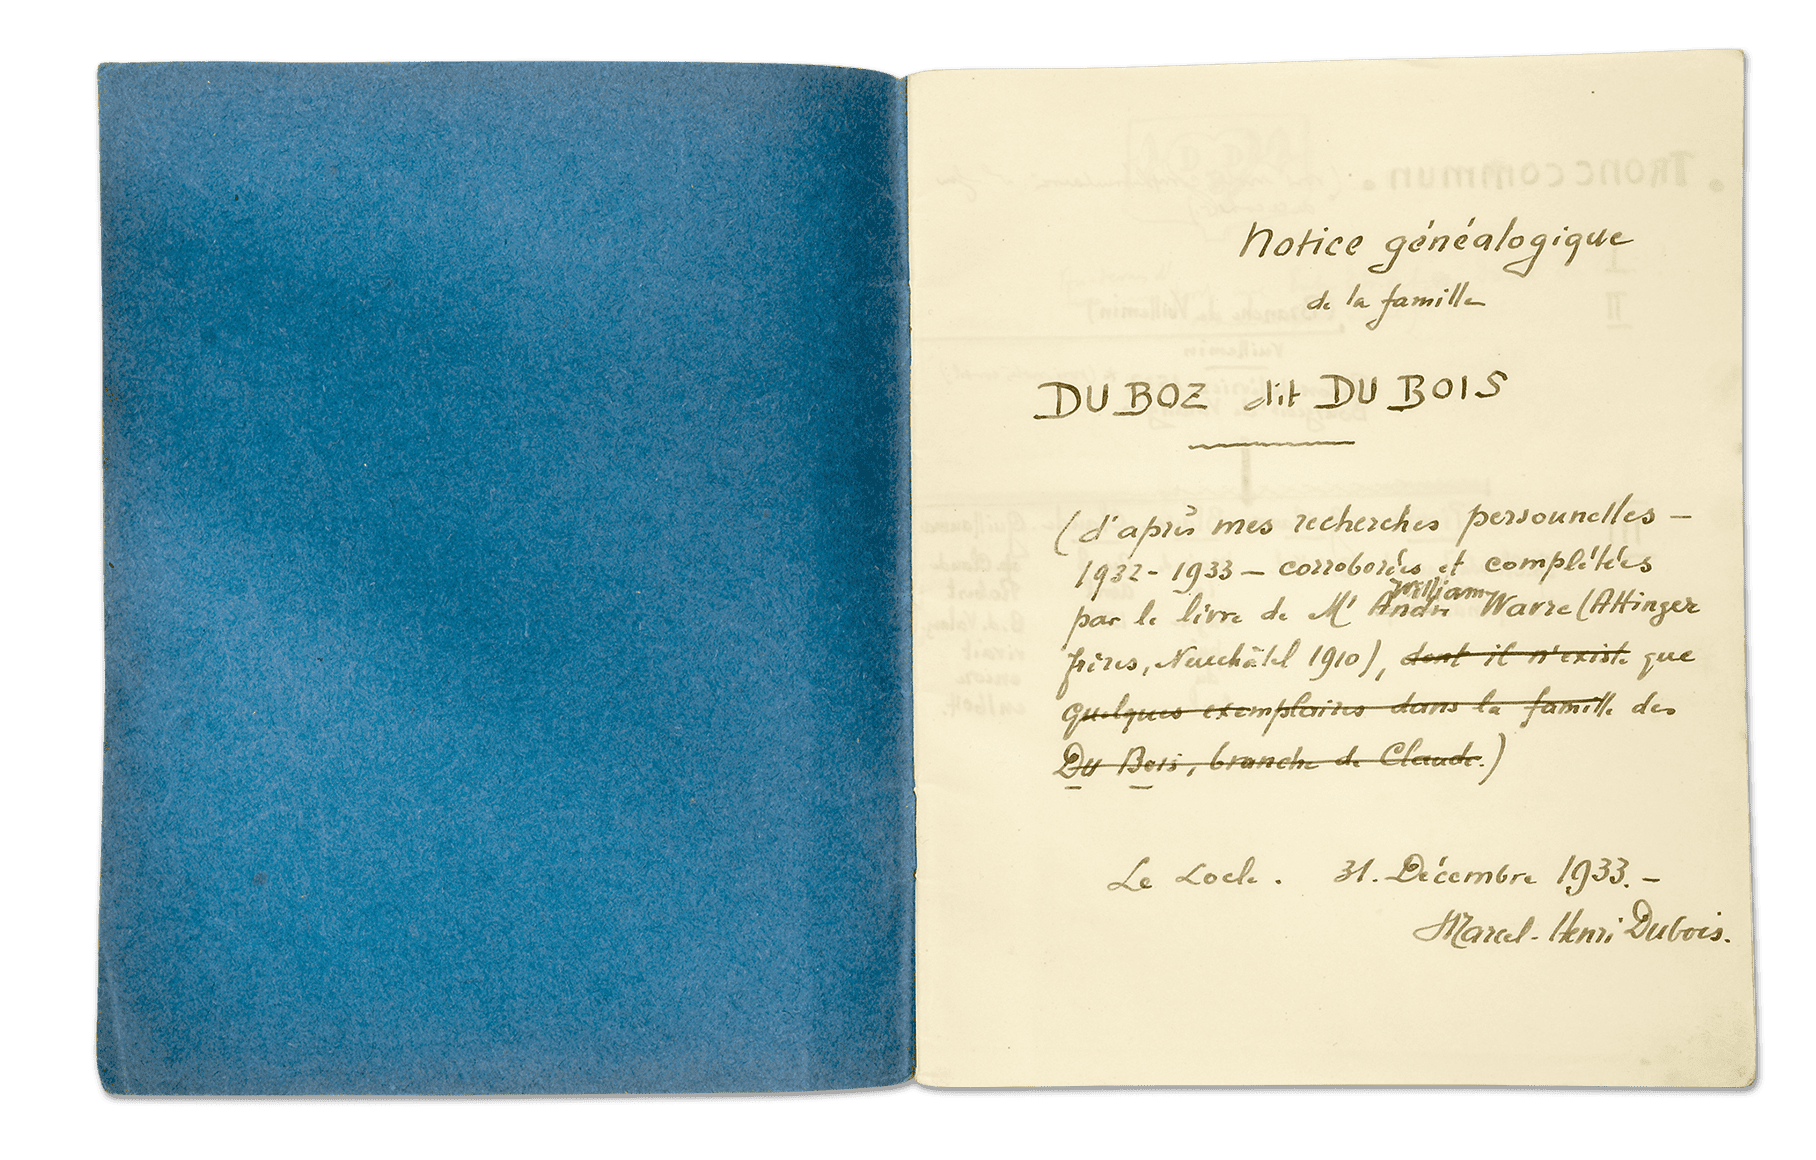 Notice généalogique
de la famille
DU BOZ dit DU BOIS
(d'après mes recherches personnelles —
1932-1933 — corroborées et complétées
william
par le livre de Mr André Warre (Attinger
frères, Neuchâtel 1910), dont il n'existe que
quelques exemplaires dans la famille des
Du Bois, branche de Claude.)
Le Locle. 31. Décembre 1933. —
Marcel-Henri Dubois.
. TRONC COMMUN .
II
(Branche de Vuillemin)
Vuillemin
Guillaume
Robert